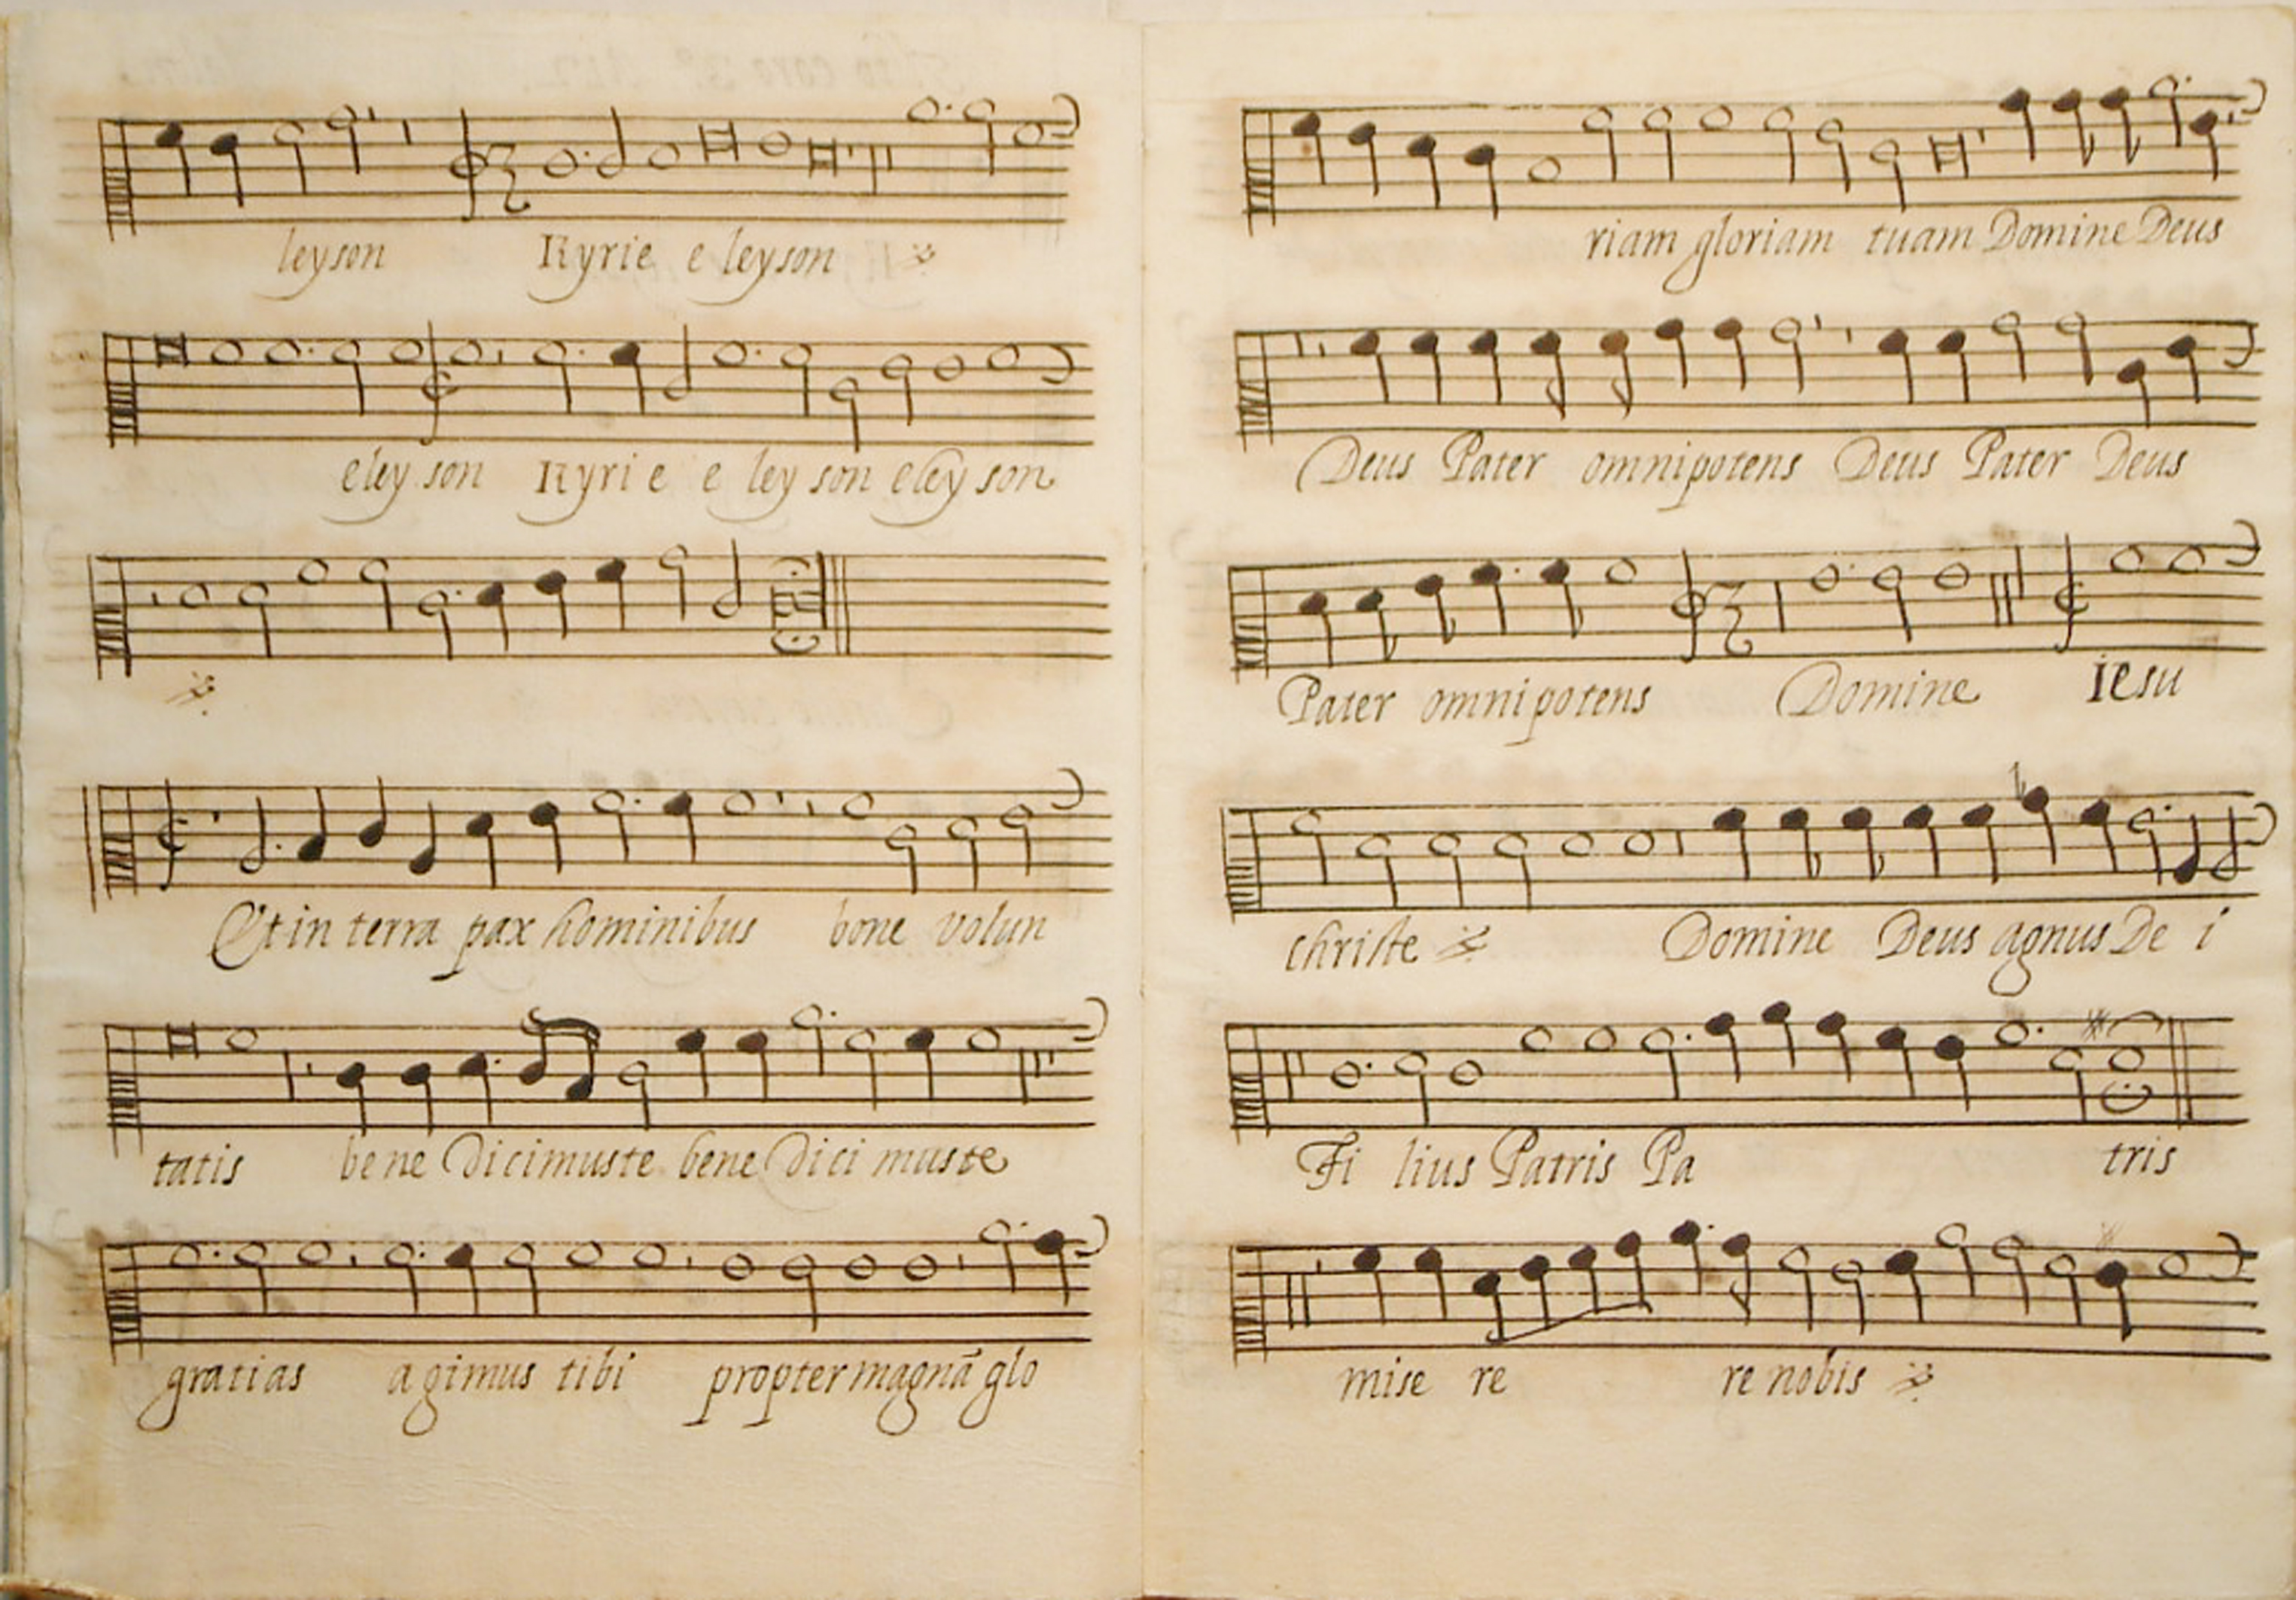 leyson Kyrie e leyson
eley son Kyri e e ley son eley son
Et in terra pax hominibus bone volun
tatis bene dicimus te bene dici mus te
gratias agimus tibi propter magnā glo
riam gloriam tuam Domine Deus
Deus Pater omnipotens Deus Pater Deus
Pater omnipotens Domine Iesu
christe Domine Deus agnus De i
Fi lius Patris Pa tris
mise re re nobis